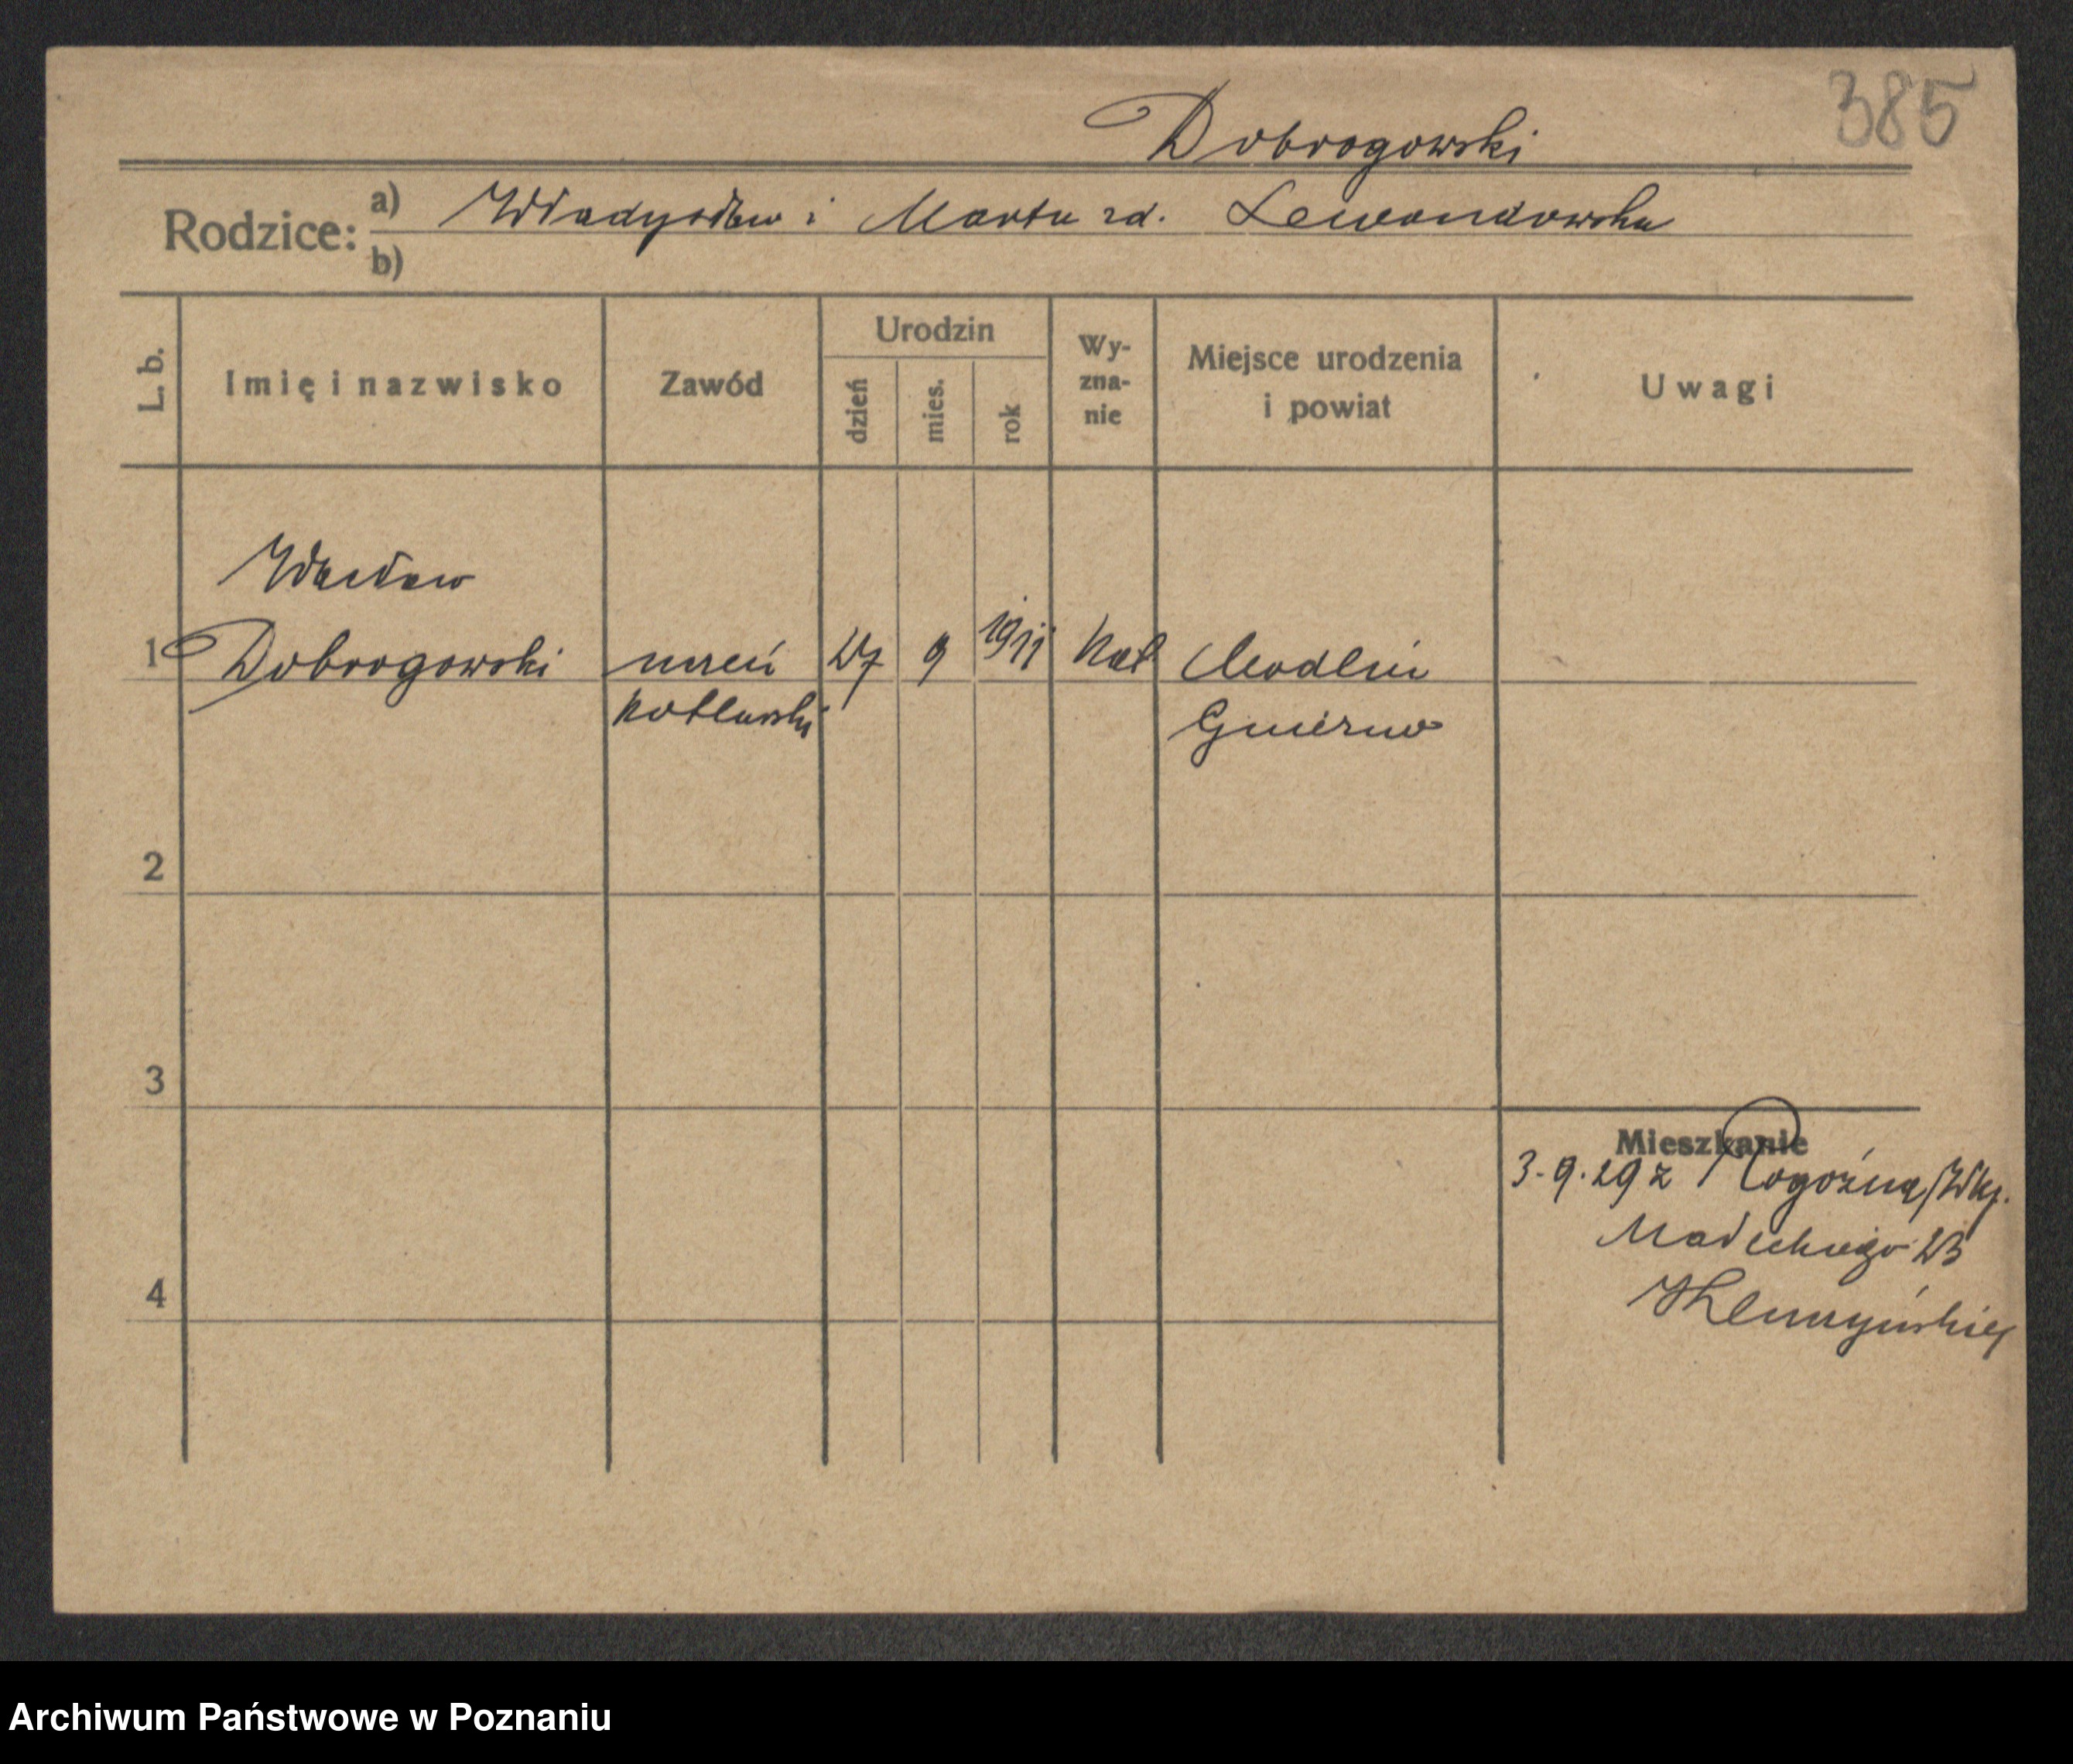 385
Dobrogowski
Rodzice: a) Władysław i Marta zd. Lewandowska
b)
L. b.
Imię i nazwisko
Zawód
Urodzin
dzień
mies.
rok
Wy-
zna-
nie
Miejsce urodzenia
i powiat
Uwagi
Wacław
1 Dobrogowski uczeń 27 9 1911 Kat Modlin
kotlarski Gniezno
2
3
4
Mieszkanie
3.9.29 z Rogoźna/Wlkp.
Małeckiego 23
Archiwum Państwowe w Poznaniu